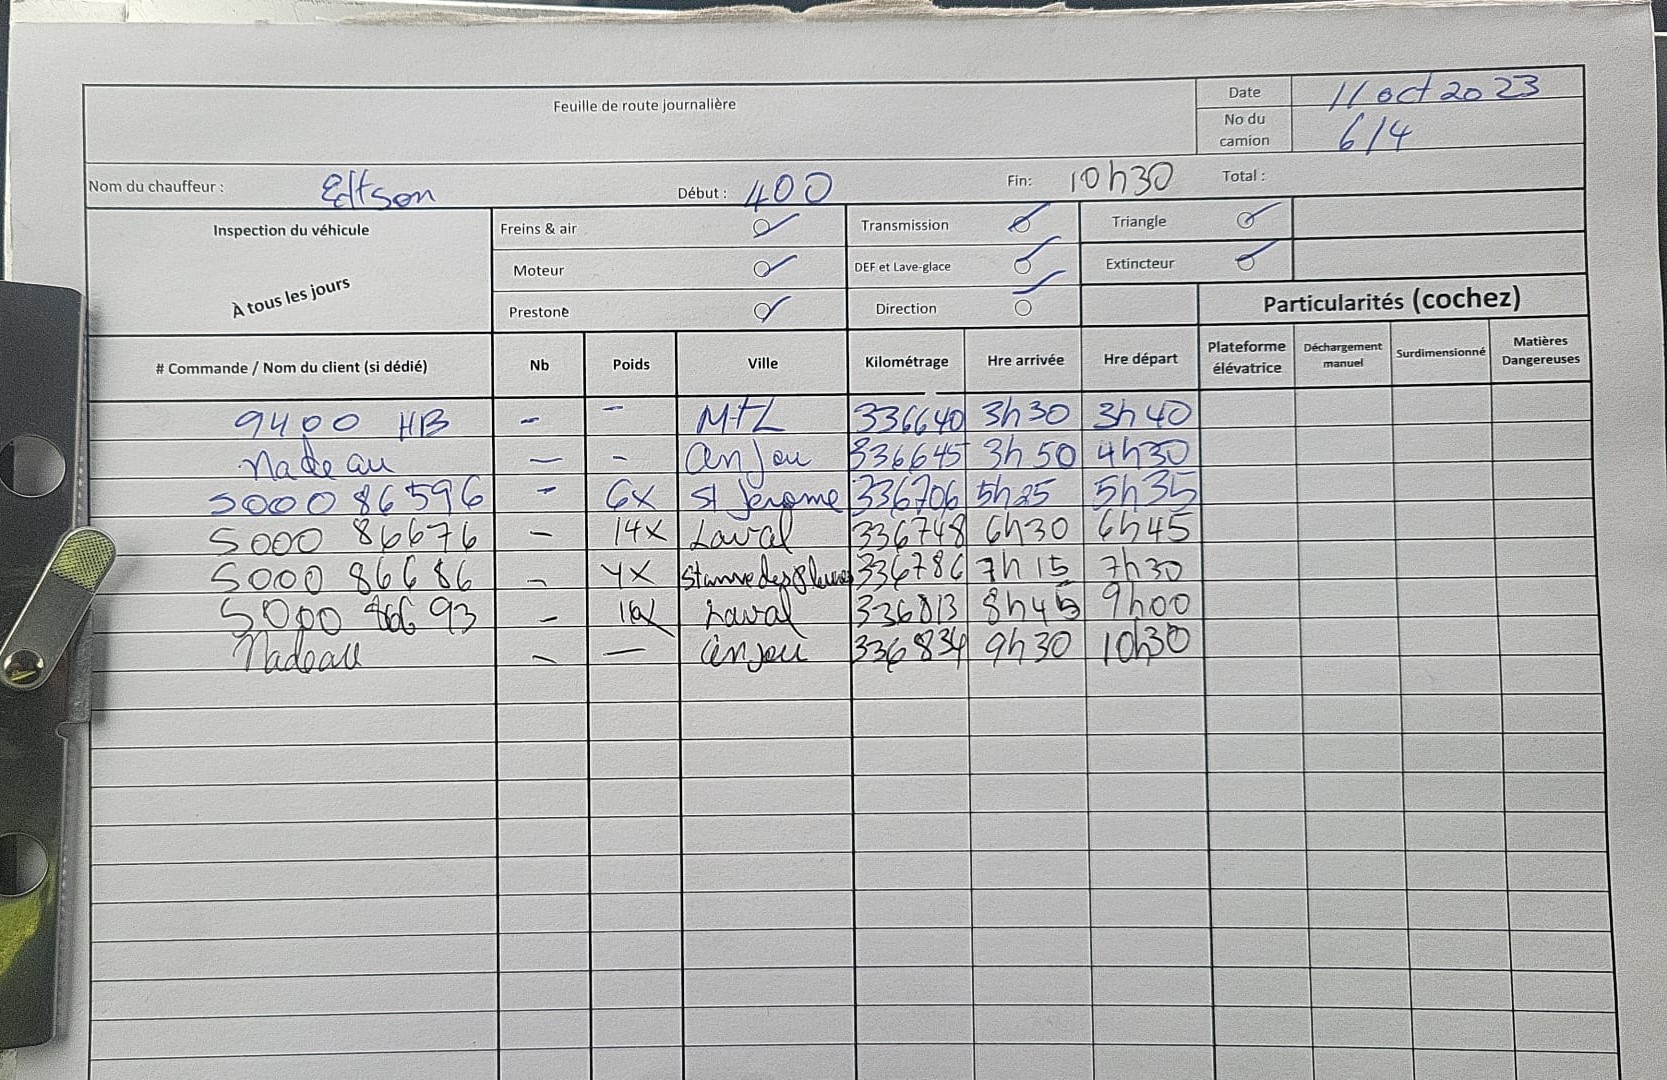 Feuille de route journalière
Date 11 oct 2023
No du camion 614
Nom du chauffeur : Edtson Début : 400 Fin: 10h30 Total :
Inspection du véhicule
À tous les jours
Freins & air Transmission Triangle
Moteur DEF et Lave-glace Extincteur
Prestone Direction
Particularités (cochez)
# Commande / Nom du client (si dédié) Nb Poids Ville Kilométrage Hre arrivée Hre départ Plateforme élévatrice Déchargement manuel Surdimensionné Matières Dangereuses
9400 HB - - MTL 336640 3h30 3h40
Nadeau - - anjou 336645 3h50 4h30
5000 86596 - 6x St Jerome 336706 5h25 5h35
5000 86676 - 14x Laval 336748 6h30 6h45
5000 86686 - 4x 336786 7h15 7h30
5000 86693 - Laval 336813 8h45 9h00
Nadeau - - anjou 336834 9h30 10h30